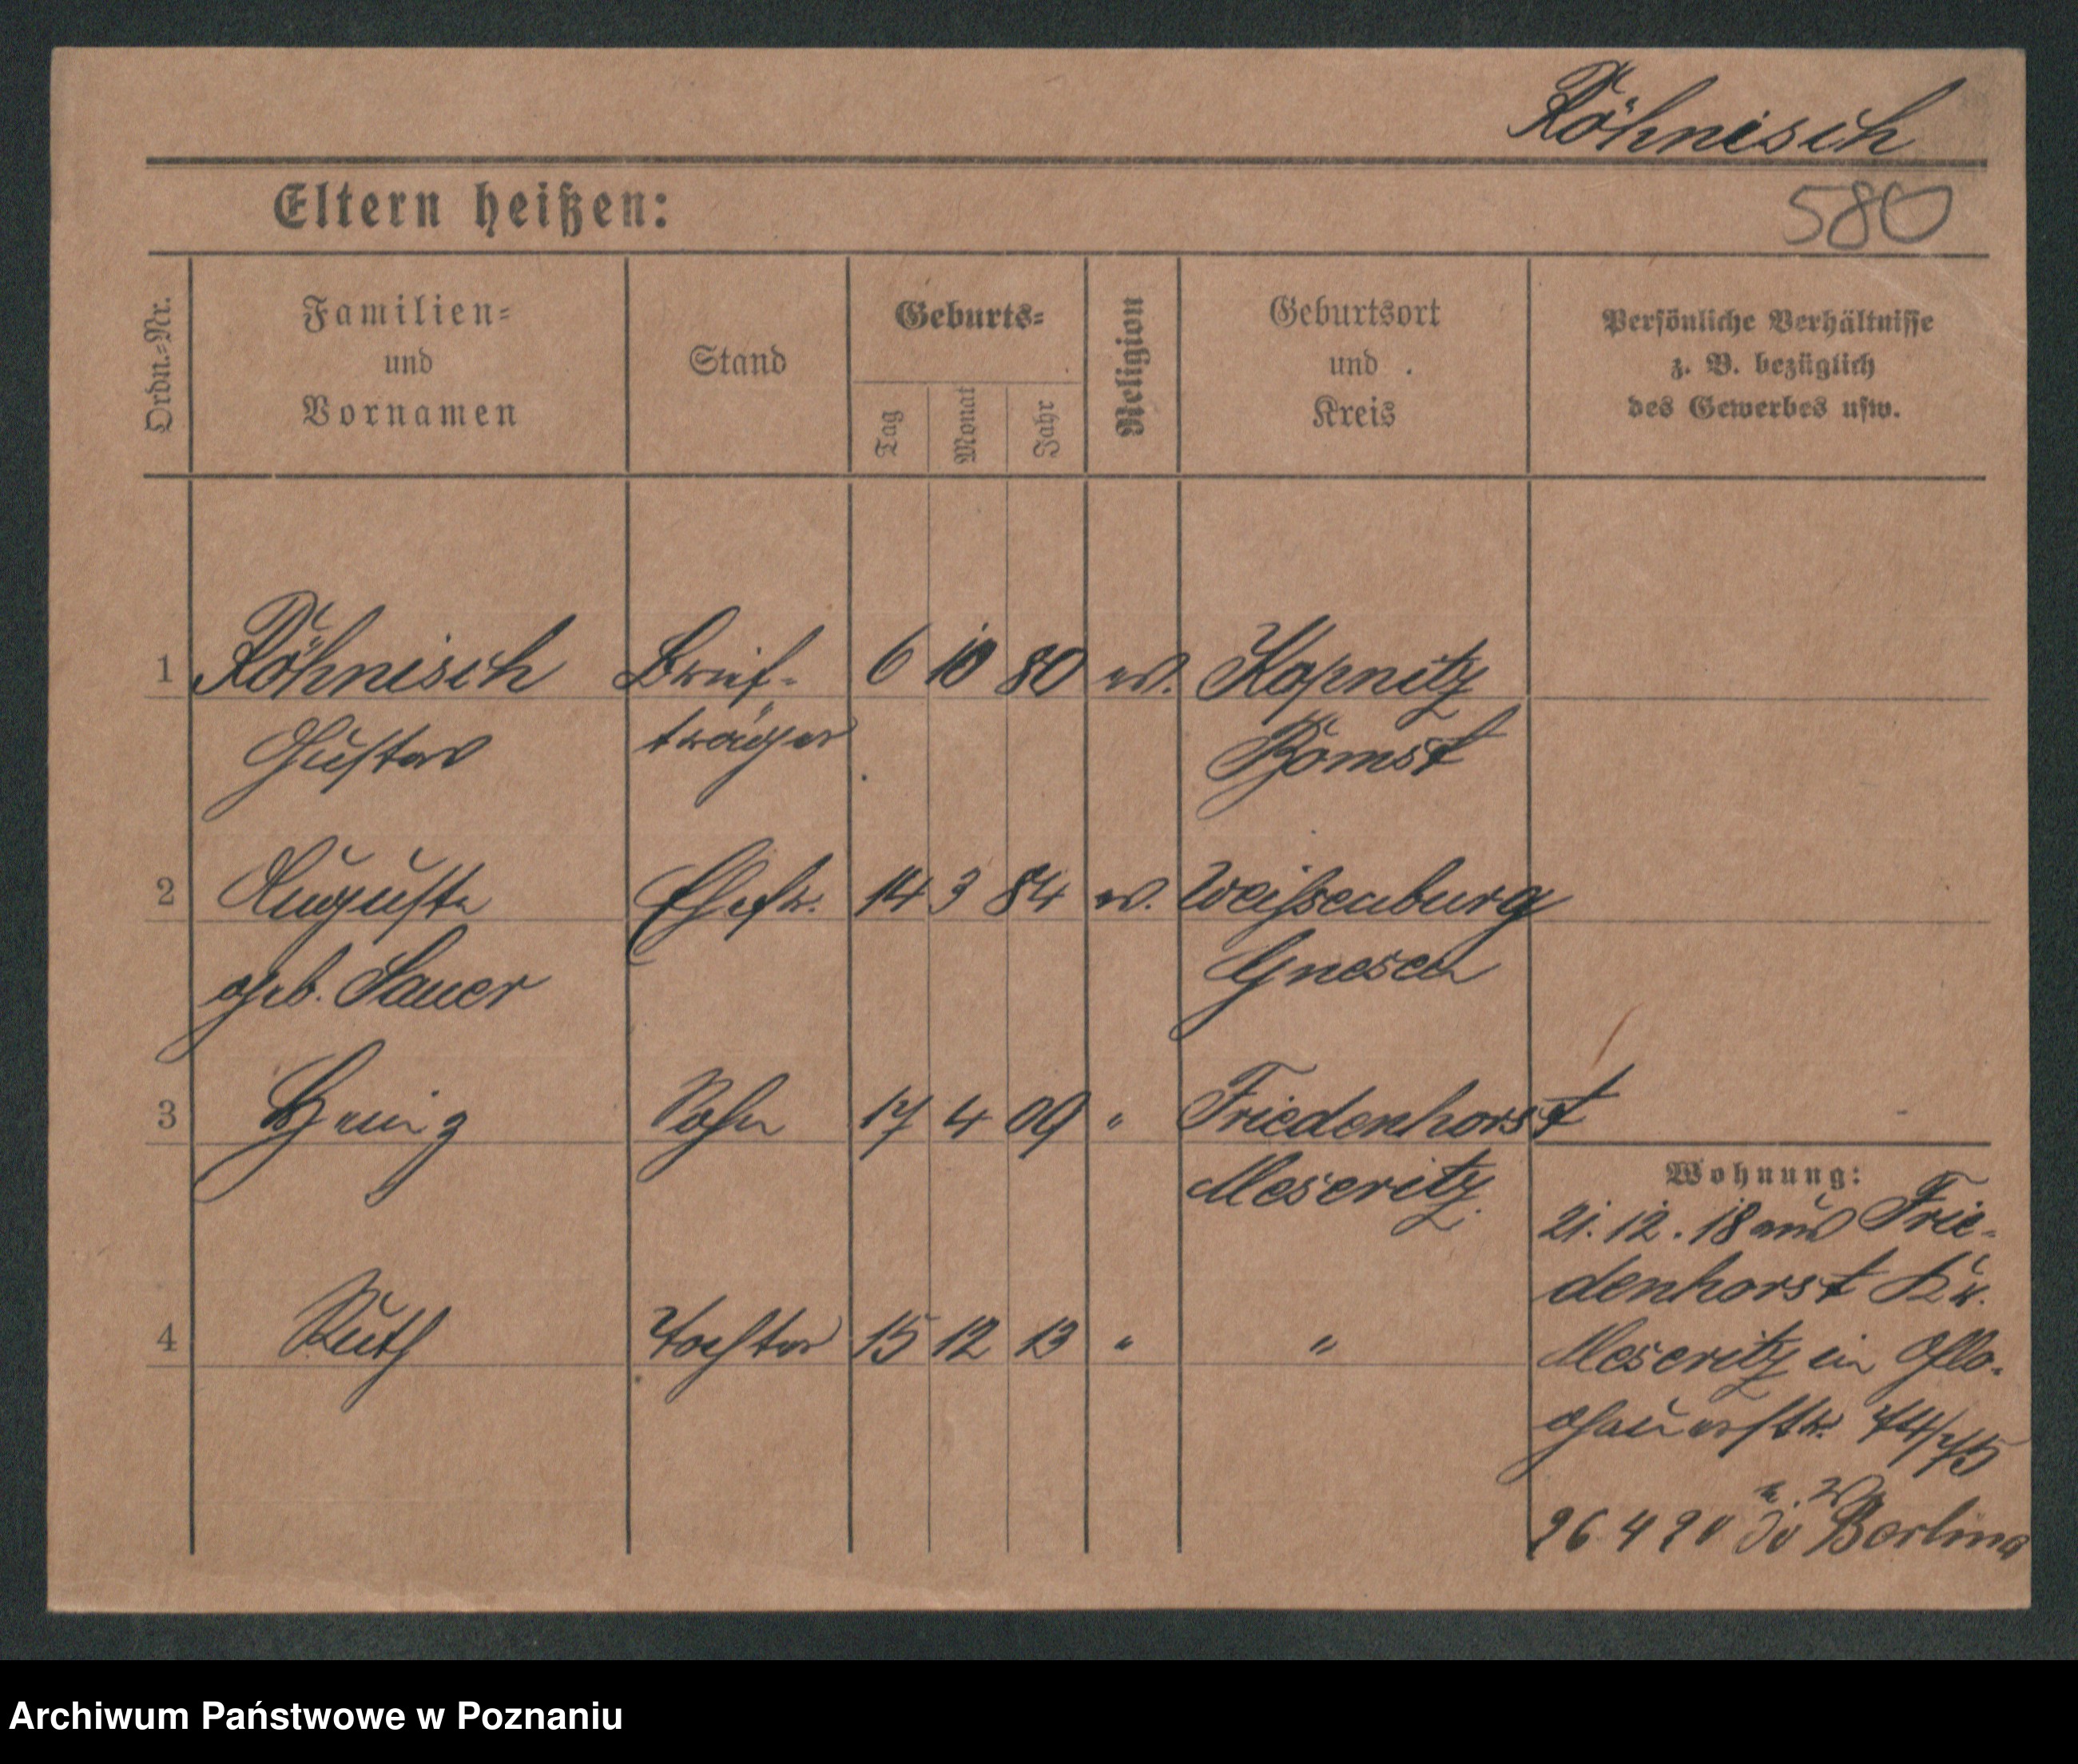 Röhnisch
Eltern heißen:
580
Ordn.-Nr.
Familien-
und
Vornamen
Stand
Geburts-
Tag
Monat
Jahr
Religion
Geburtsort
und
Kreis
Persönliche Verhältnisse
z. B. bezüglich
des Gewerbes usw.
1 Röhnisch Brief- 6 10 80 ev. Kopnitz
Gustav träger Bomst
2 Auguste Ehefr. 14 3 84 ev. Weißenburg
geb. Sauer Gnesen
3 Sohn 17 4 09 " Friedenhorst
Meseritz.
4 Ruth Tochter 15 12 13 " "
Wohnung:
21.12.18 aus Frie-
denhorst Kr.
Meseritz in Glo-
gauerstr. 74/75
26 4 20 Berlin
Archiwum Państwowe w Poznaniu